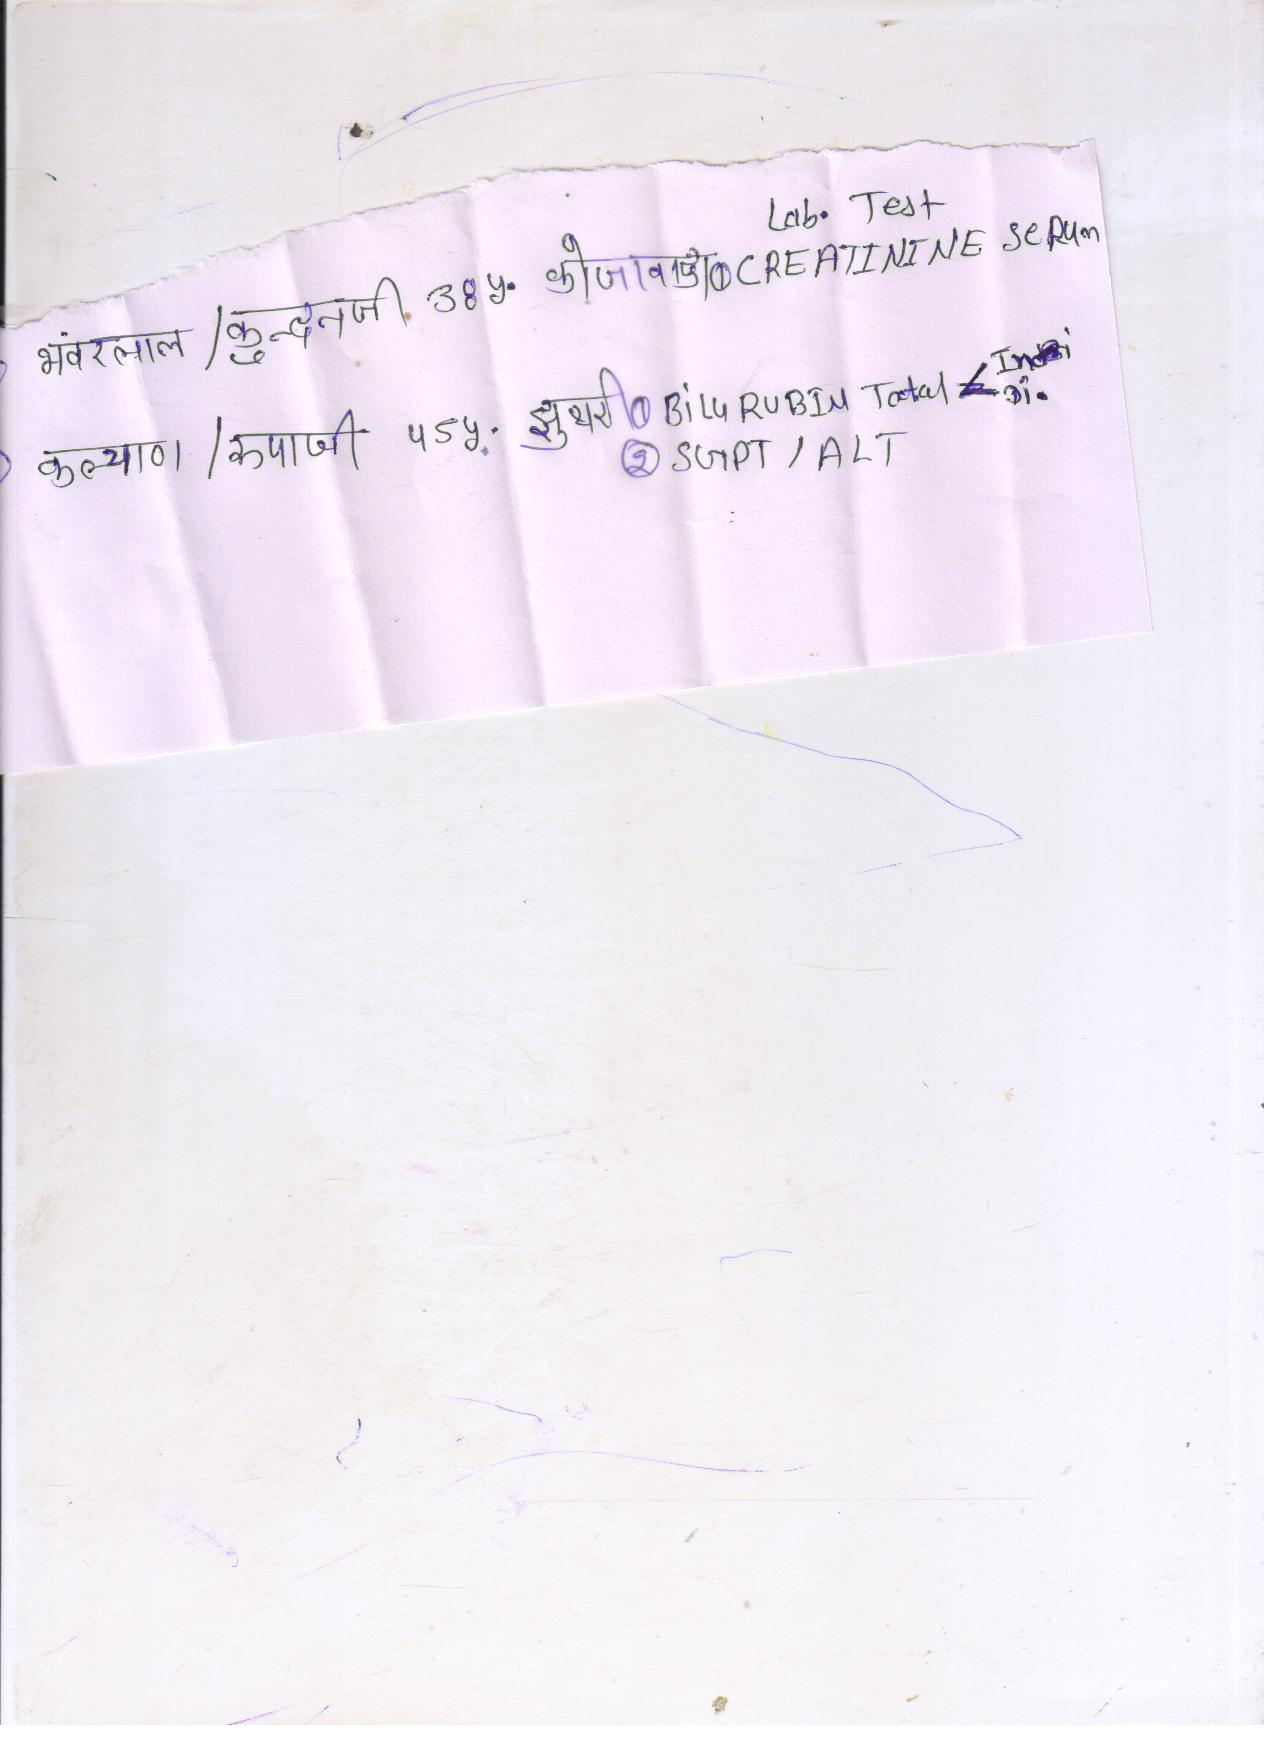 Lab. Test
भंवरलाल / कुन्दनजी. 38y. कोजावाड़ा ① CREATININE SERUM
Indi
कल्याण / रूपाजी 45y. झुथरी ① BILURUBIN Total < Di.
② SGPT / ALT